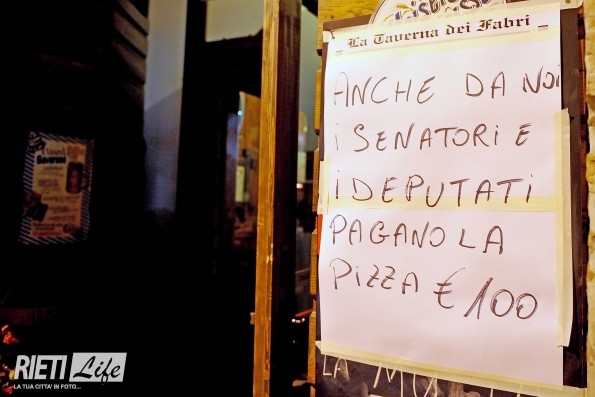 La Taverna dei Fabri
ANCHE DA NOI
I SENATORI E
I DEPUTATI
PAGANO LA
PIZZA € 100
LA
RIETI Life
LA TUA CITTA' IN FOTO...